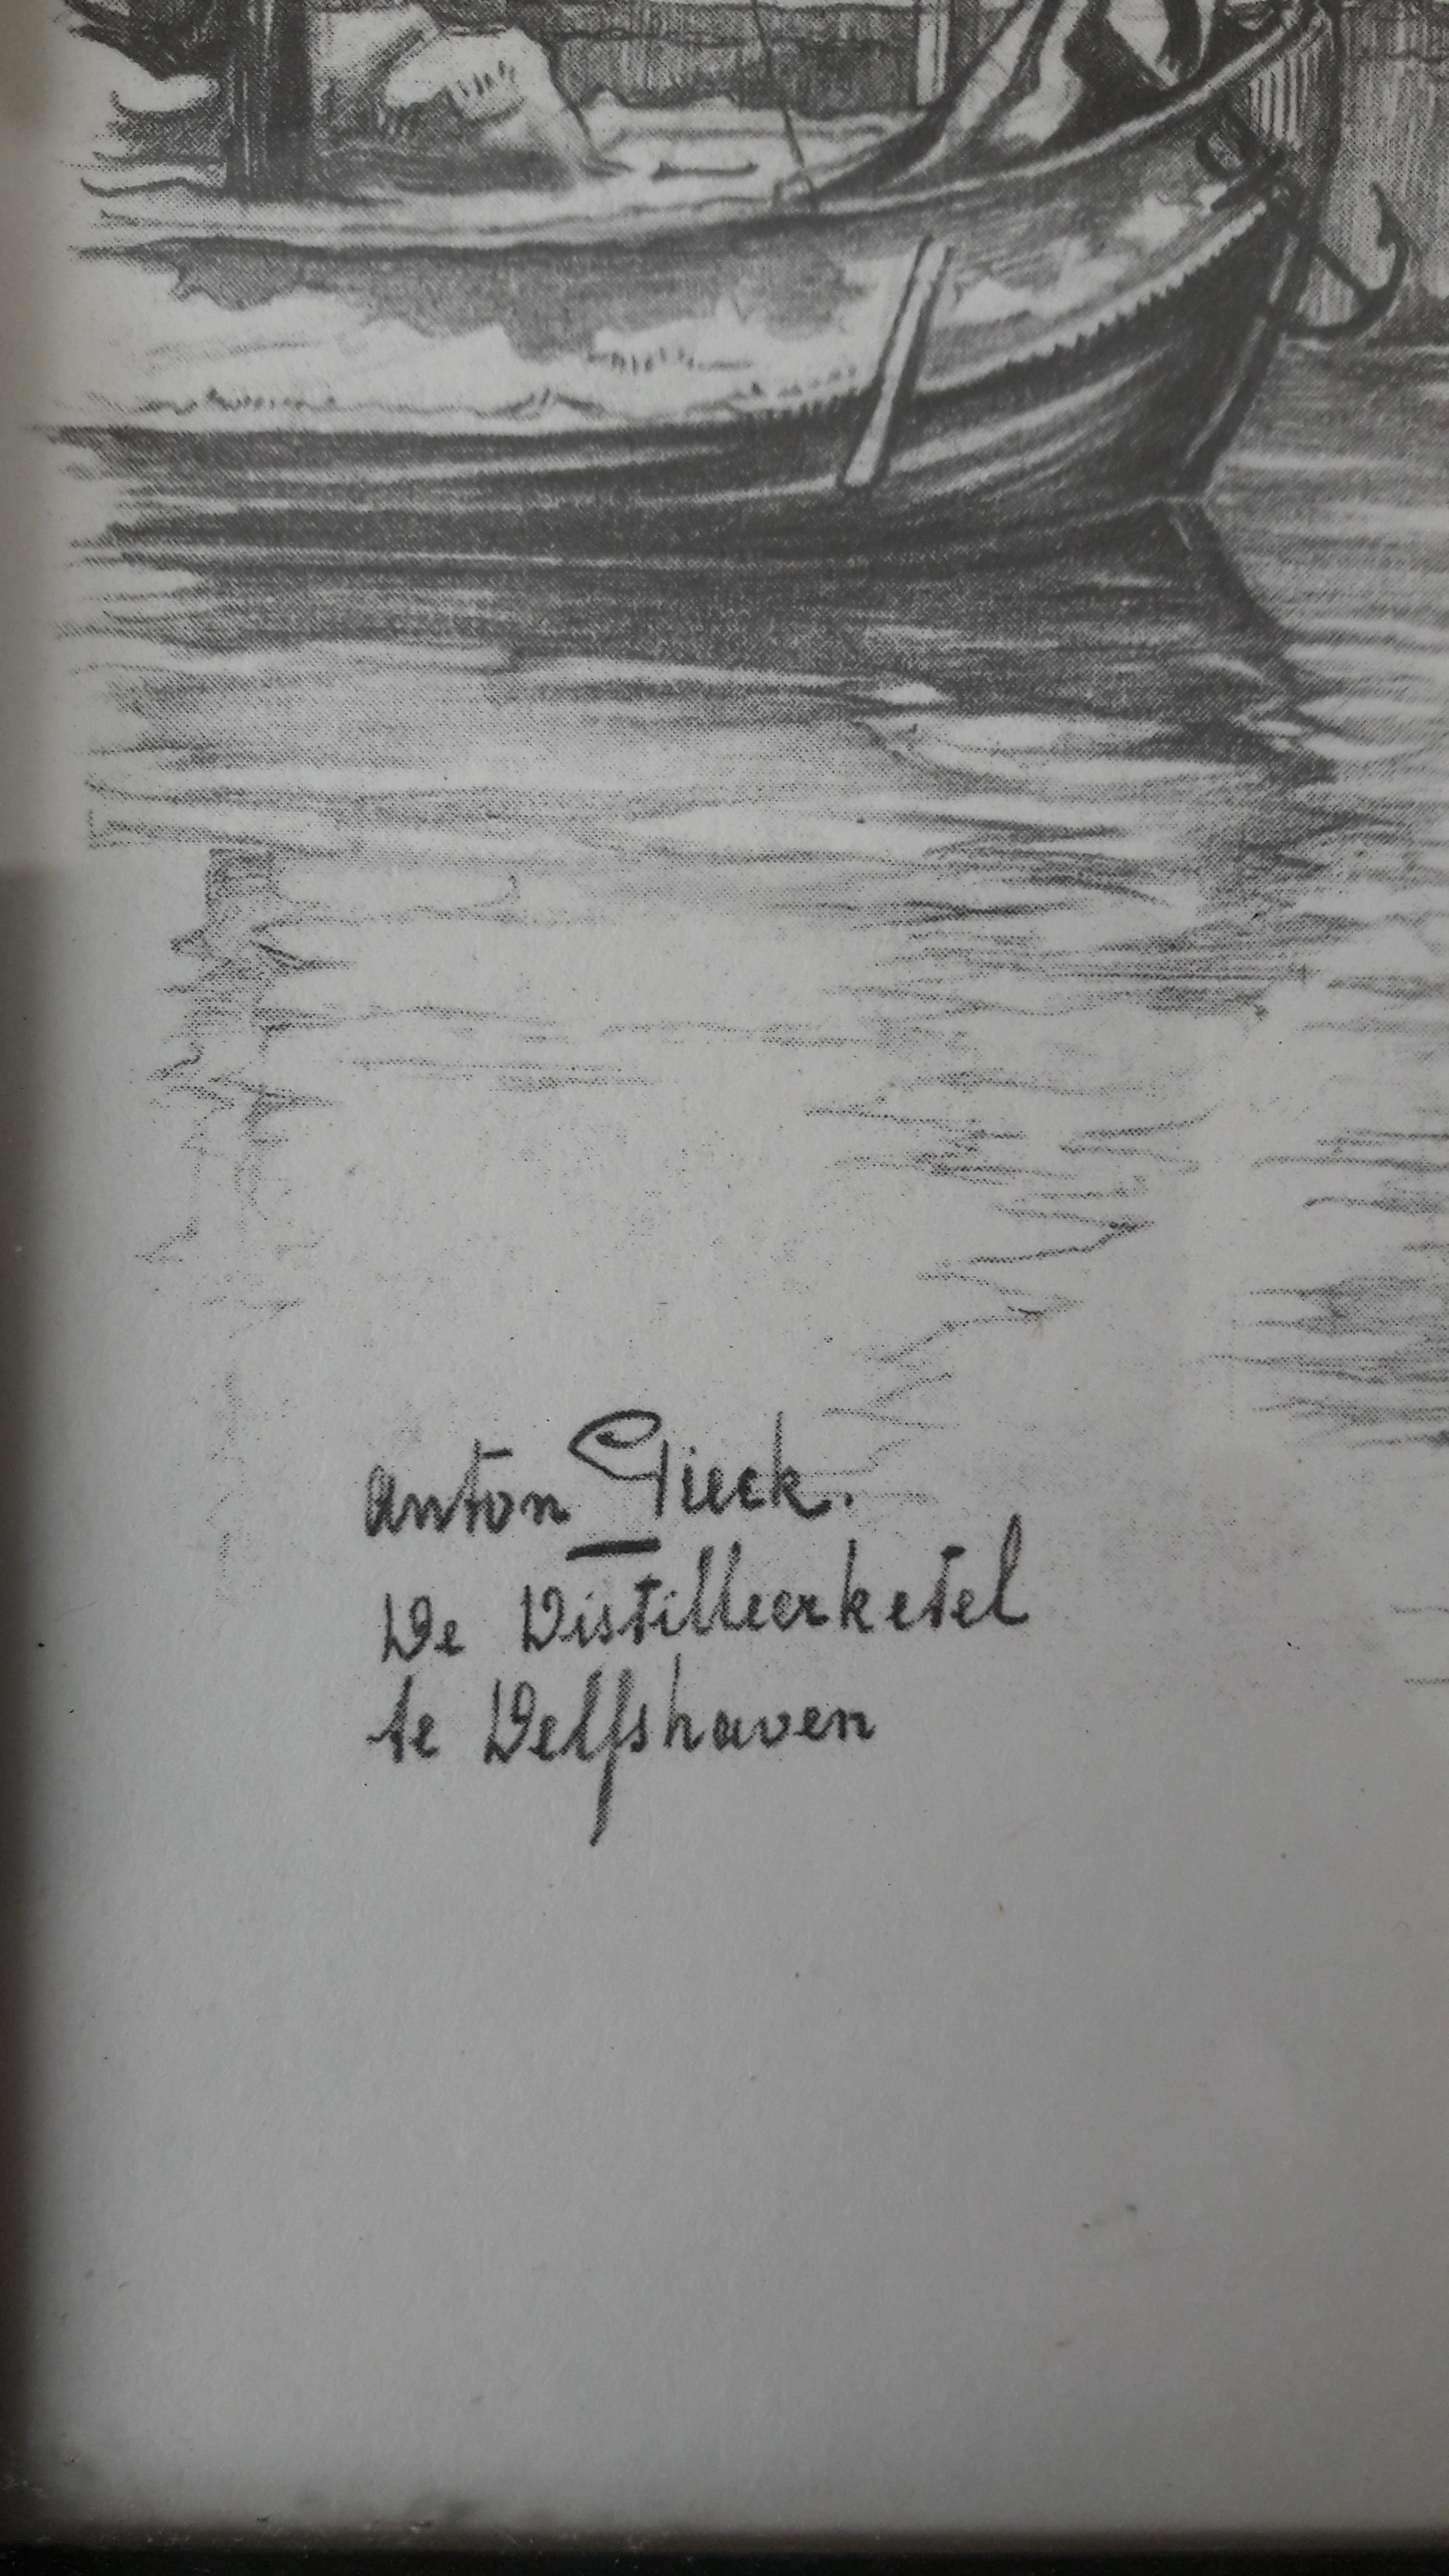 Anton Pieck.
De Distilleerketel
te Delfshaven